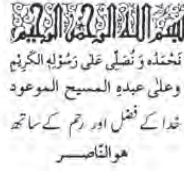 بسم الله الرحمن الرحيم
نَحْمَدُهٗ وَ نُصَلِّیْ عَلٰی رَسُوْلِهِ الْكَرِیْمِ
وعلٰی عبدہِ المسیح الموعود
خدا کے فضل اور رحم کے ساتھ
ھو النّاصر